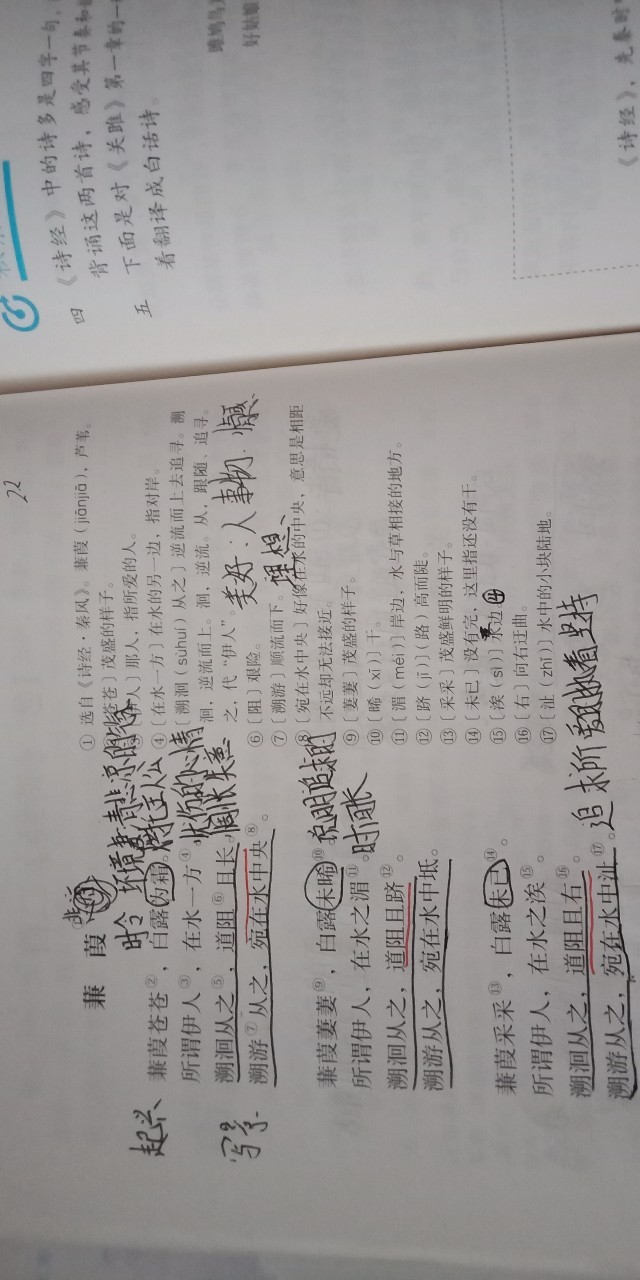 四 《诗经》中的诗多是四字一句，
背诵这两首诗，感受其节奏和
五 下面是对《关雎》第一章的一
着翻译成白话诗。
雎鸠鸟
好姑娘
《诗经》，先秦时
22
蒹葭
时令 环境凄清悲凉的
起兴
蒹葭苍苍②，白露为霜。
所谓伊人③，在水一方④。
忧伤的心情
溯洄从之⑤，道阻⑥且长。
惆怅失意
写景
溯游⑦从之，宛在水中央⑧。
蒹葭萋萋⑨，白露未晞⑩。
说明追求的
时间长
所谓伊人，在水之湄⑪。
溯洄从之，道阻且跻⑫。
溯游从之，宛在水中坻。
蒹葭采采⑬，白露未已⑭。
所谓伊人，在水之涘⑮。
溯洄从之，道阻且右⑯。
溯游从之，宛在水中沚⑰。
追求所 坚持
① 选自《诗经·秦风》。蒹葭（jiānjiā），芦苇。
苍苍〕茂盛的样子。
人〕那人，指所爱的人。
④〔在水一方〕在水的另一边，指对岸。
〔溯洄（sùhuí）从之〕逆流而上去追寻。溯
洄，逆流而上。洄，逆流。从，跟随、追寻。
之，代“伊人”。
美好：人 事物
理想、
⑥〔阻〕艰险。
⑦〔溯游〕顺流而下。
⑧〔宛在水中央〕好像在水的中央，意思是相距
不远却无法接近。
⑨〔萋萋〕茂盛的样子。
⑩〔晞（xī）〕干。
⑪〔湄（méi）〕岸边，水与草相接的地方。
⑫〔跻（jī）〕（路）高而陡。
⑬〔采采〕茂盛鲜明的样子。
⑭〔未已〕没有完，这里指还没有干。
⑮〔涘（sì）〕水边。
⑯〔右〕向右迂曲。
⑰〔沚（zhǐ）〕水中的小块陆地。